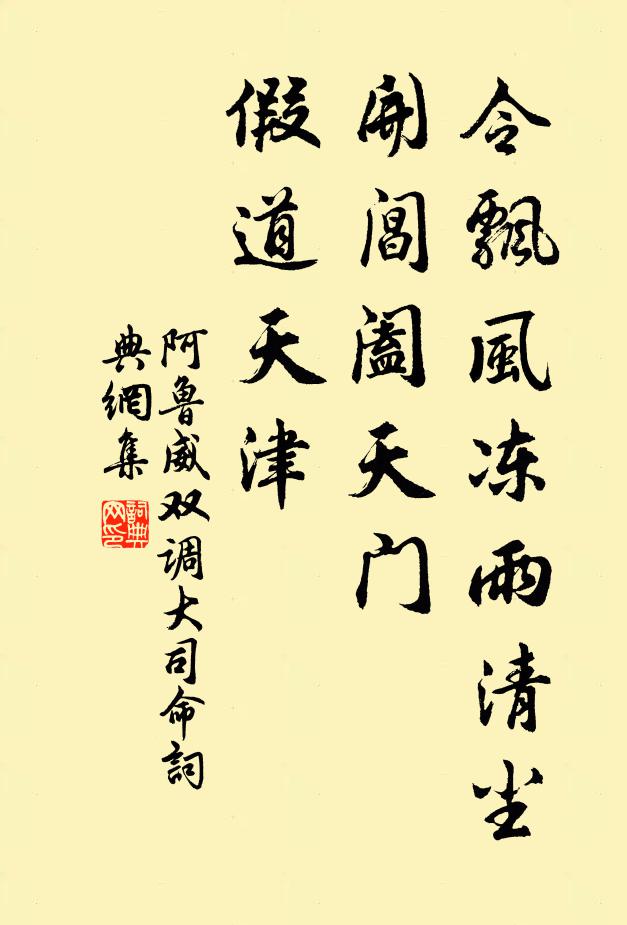 令飄風冻雨清尘
開閶阖天门
假道天津
阿魯威双调大司命詞
典網集
詞典
网印